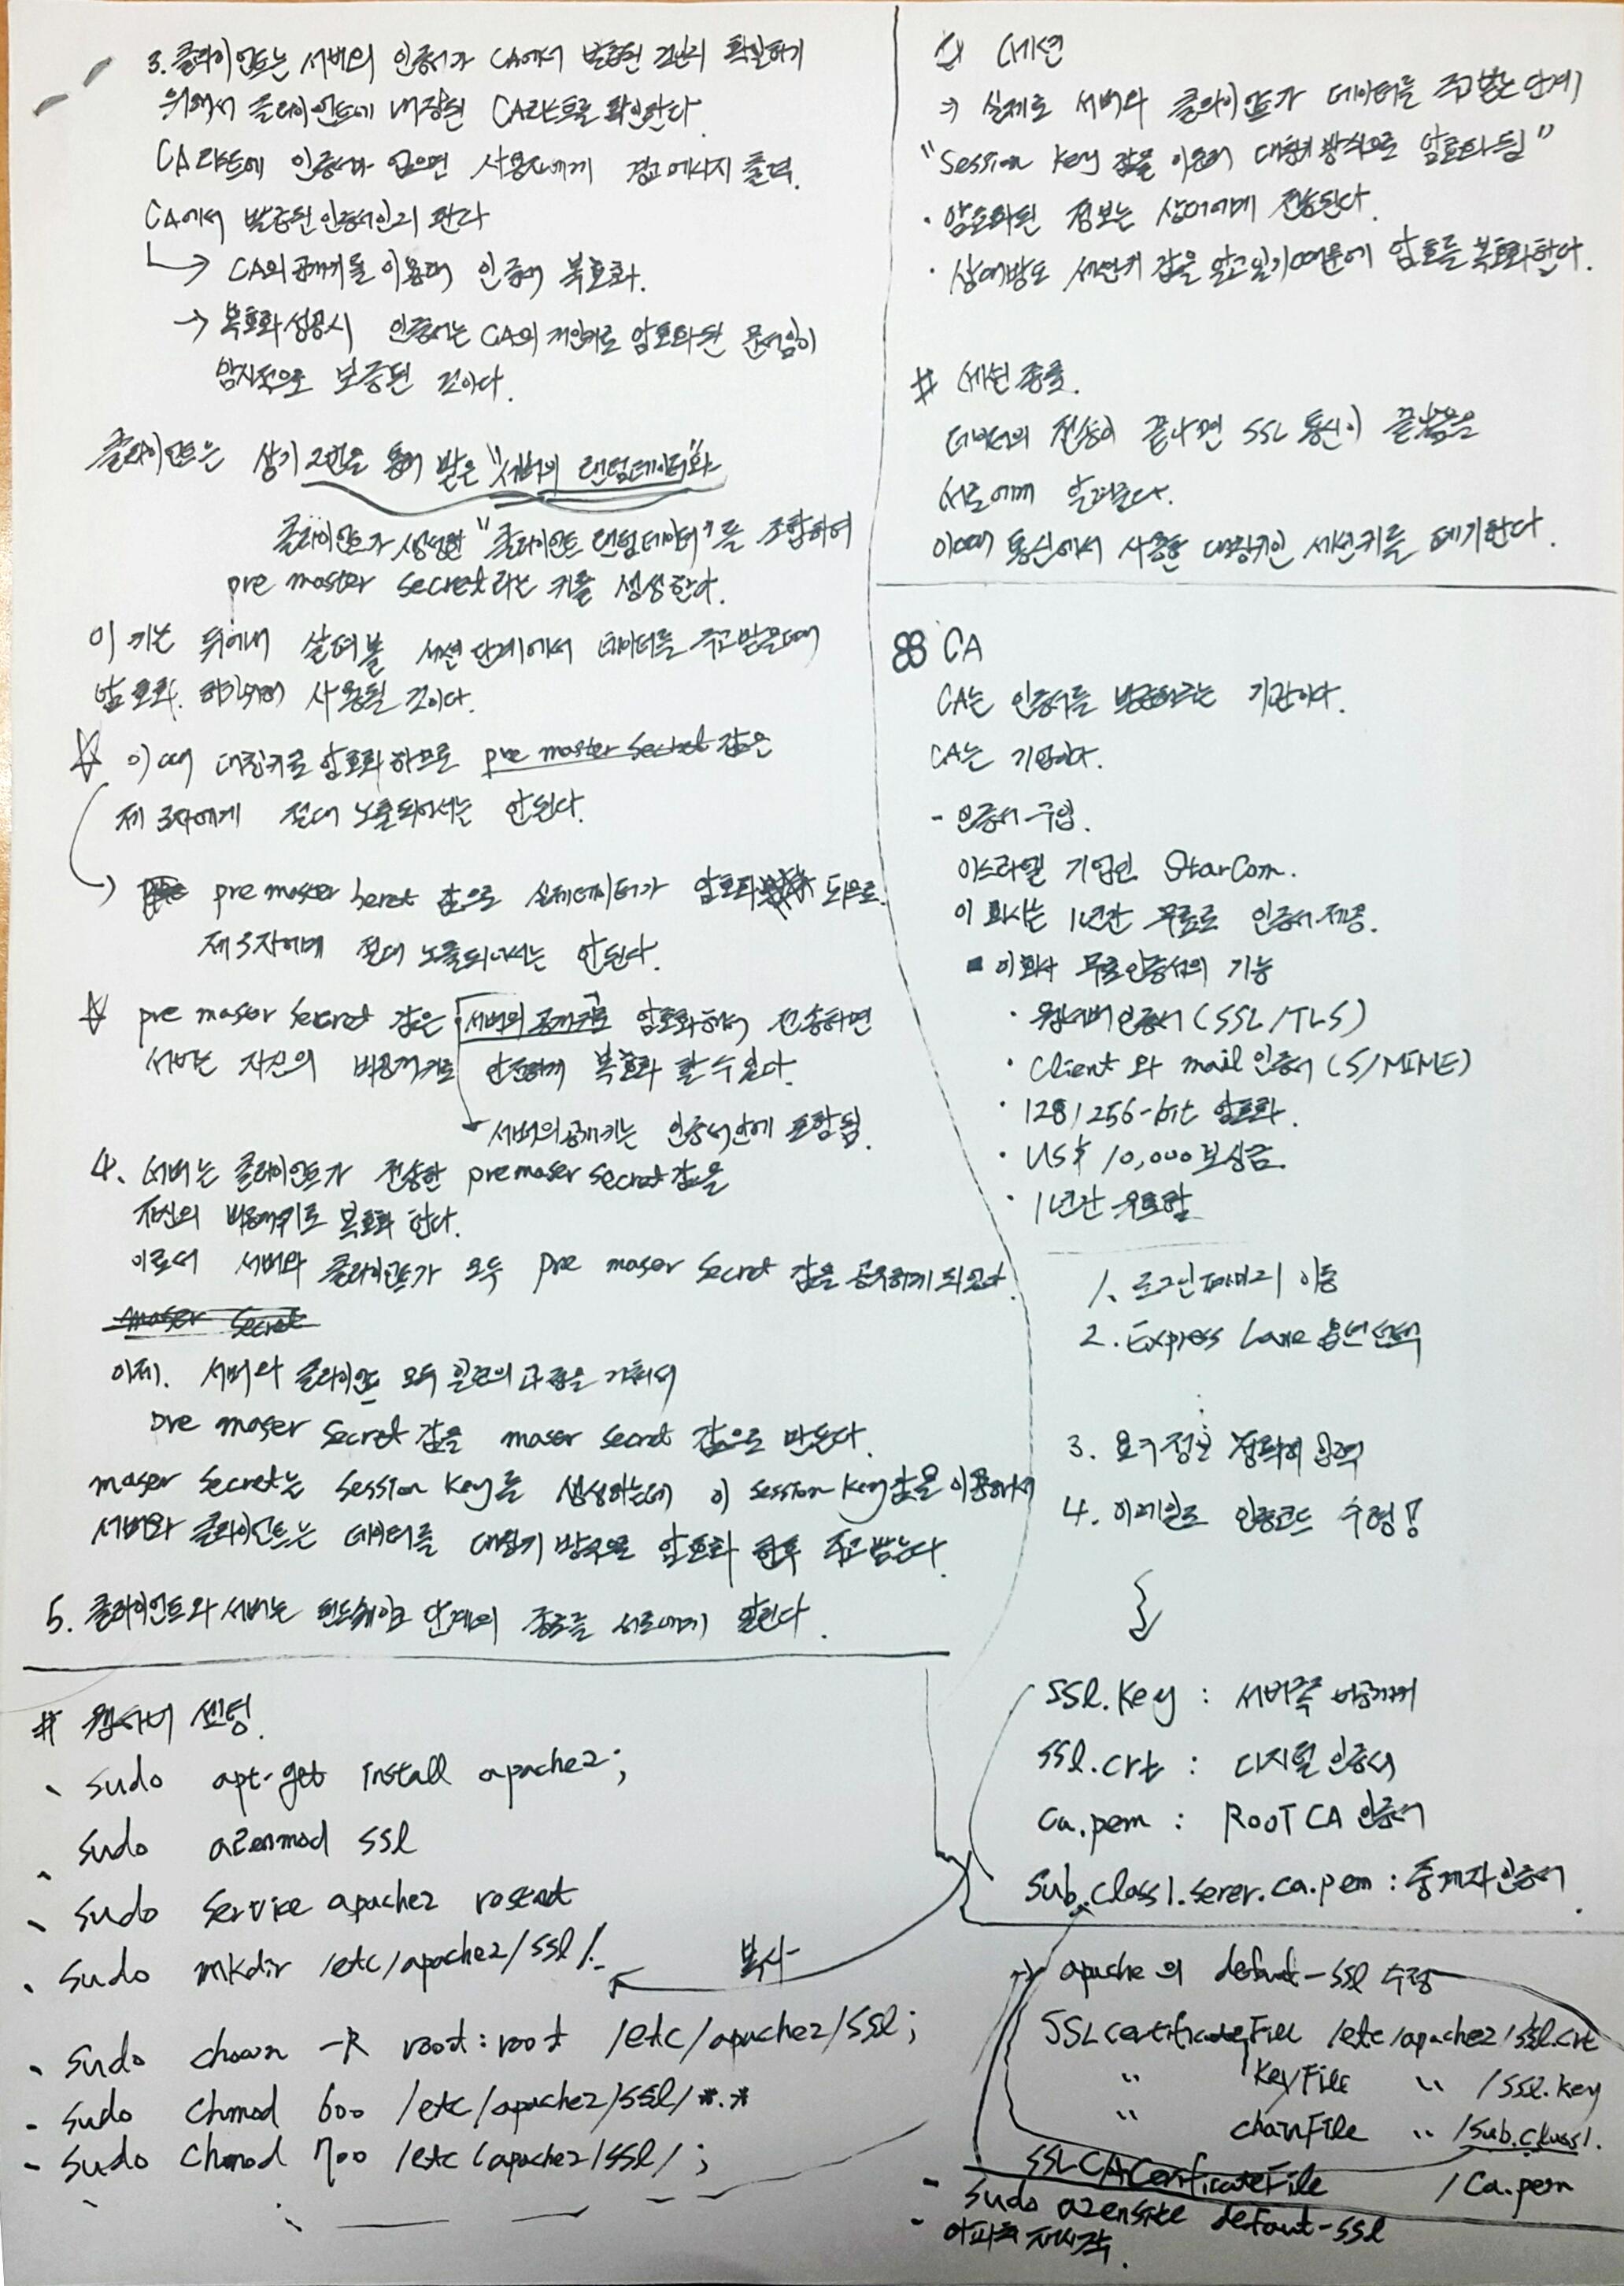 3. 클라이언트는 서버의 인증서가 CA에서 발급된 건인지 확인하기
위해서 클라이언트에 내장된 CA리스트를 확인한다.
CA리스트에 인증서가 없으면 사용자에게 경고메시지 출력.
CA에서 발급된 인증서인지 판단
↳ CA의 공개키를 이용해 인증서 복호화.
→ 복호화 성공시 인증서는 CA의 개인키로 암호화된 문서임이
암시적으로 보증된 것이다.
클라이언트는 상기 2번을 통해 받은 "서버의 랜덤데이터"와
클라이언트가 생성한 "클라이언트 랜덤데이터"를 조합하여
pre master secret라는 키를 생성한다.
이 키는 뒤에서 살펴볼 세션 단계에서 데이터를 주고받을때
암호화 하기위해 사용될 것이다.
☆ 이때 대칭키로 암호화 하므로 pre master secret 값은
제 3자에게 절대 노출되어서는 안된다.
→ pre master secret 값으로 실제데이터가 암호화 되므로
제 3자에게 절대 노출되어서는 안된다.
☆ pre maser secret 값은 서버의 공개키로 암호화해서 전송하면
서버는 자신의 비공개키로 안전하게 복호화 할 수 있다.
서버의 공개키는 인증서안에 포함됨.
4. 서버는 클라이언트가 전송한 pre maser secret 값을
자신의 비공개키로 복호화 한다.
이로서 서버와 클라이언트가 모두 pre maser secret 값을 공유하게 되었다.
maser secret
이제. 서버와 클라이언트 모두 일련의 과정을 거쳐서
pre maser secret 값을 maser secret 값으로 만든다.
maser secret는 session key를 생성하는데 이 session key값을 이용하여
서버와 클라이언트는 데이터를 대칭키 방식으로 암호화 한후 주고 받는다.
5. 클라이언트와 서버는 핸드쉐이크 단계의 종료를 서로에게 알린다.
# 웹서버 셋팅.
sudo apt-get install apache2;
sudo a2enmod ssl
sudo service apache2 restart
sudo mkdir /etc/apache2/ssl/.
복사
- sudo chown -R root:root /etc/apache2/ssl;
- sudo chmod 600 /etc/apache2/ssl/*.*
- sudo chmod 700 /etc/apache2/ssl/;
세션
→ 실제로 서버와 클라이언트가 데이터를 주고 받는 단계
"Session key 값을 이용해 대칭키 방식으로 암호화됨"
· 암호화된 정보는 상대에게 전송된다.
· 상대방도 세션키 값을 알고 있기때문에 암호를 복호화한다.
# 세션종료.
데이터의 전송이 끝나면 SSL 통신이 끝났음을
서로에게 알려준다.
이때 통신에서 사용한 대칭키인 세션키를 폐기한다.
CA
CA는 인증서를 발급해주는 기관이다.
CA는 기업이다.
- 인증서 구입.
이스라엘 기업인 StarCom.
이 회사는 1년간 무료로 인증서 제공.
▪ 이회사 무료인증서의 기능
· 웹서버 인증서 (SSL/TLS)
· Client 와 mail 인증서 (S/MIME)
· 128/256-bit 암호화.
· US$ 10,000 보상금.
· 1년간 유효함
1. 로그인 페이지 이동
2. Express Lane 옵션 선택
3. 요구정보 정확히 입력
4. 이메일로 인증코드 수령!
ssl.key : 서버쪽 비공개키
ssl.crt : 디지털 인증서
ca.pem : ROOT CA 인증서
sub.class1.serer.ca.pem : 중개자 인증서.
apache 의 defaut-ssl 수정
SSLCertificateFile /etc/apache2/ssl.crt
" KeyFile " /ssl.key
" chainFile " /sub.class1.
SSLCACerificateFile /ca.pem
- sudo a2ensite defaut-ssl
- 아파치 재시작.